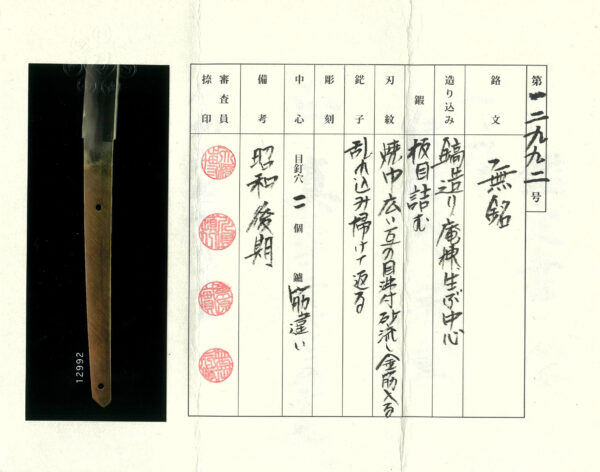 第一二九九二号
銘文 無銘
造り込み 鎬造り、庵棟、生ぶ中心
鍛 板目詰む
刃紋 焼巾広い互の目沸付砂流し金筋入る
鋩子 乱れ込み掃けて返る
彫刻
中心 目釘穴 二 個 鑢 筋違い
備考 昭和後期
審査員
捺印
12992